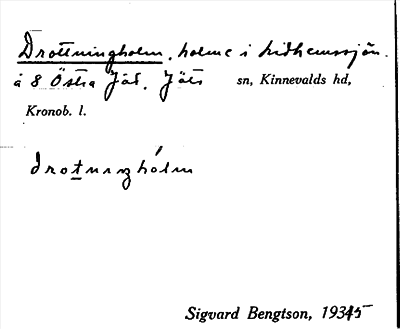 Drottningholm, holme i Lidhemssjön.
å 8 Östra Jät. Jäts sn, Kinnevalds hd,
Kronob. l.
drotnıŋhólm
Sigvard Bengtson, 1935